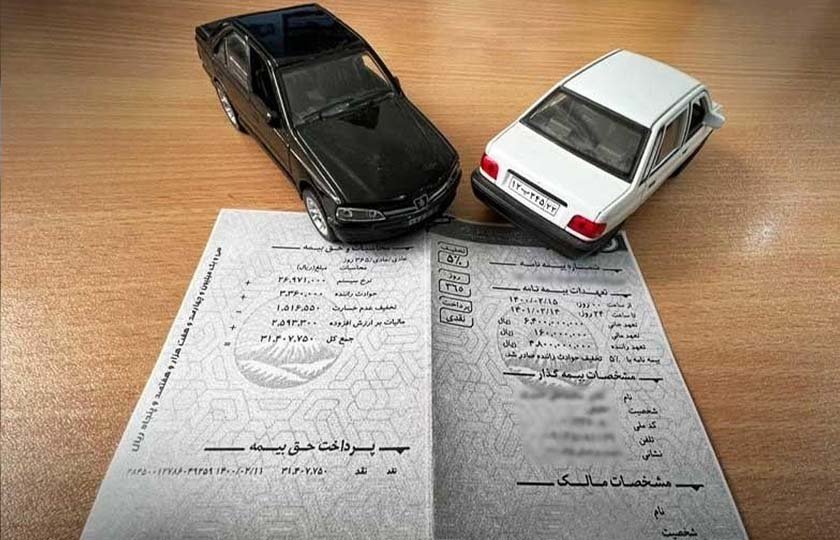 تخفیف
۵%
روز
۳۶۵
پرداخت
نقدی
شماره بیمه نامه
تعهدات بیمه نامه
از ساعت ۰۰ روز: ۱۴۰۰/۰۲/۱۵
تا ساعت ۲۴ روز: ۱۴۰۱/۰۲/۱۴
تعهد جانی ۶،۴۰۰،۰۰۰،۰۰۰ ریال
تعهد مالی ۱۶۰،۰۰۰،۰۰۰ ریال
تعهد راننده ۴،۸۰۰،۰۰۰،۰۰۰ ریال
بیمه نامه با ۵% تخفیف حوادث راننده صادر شد.
مشخصات بیمه گذار
نام
شخصیت
کد ملی
تلفن
نشانی
مشخصات مالک
نام
شخصیت
محاسبات و حق بیمه
عادی/عادی/۳۶۵ روز
محاسبات مبلغ(ریال)
نرخ سیستم ۲۶،۹۷۱،۰۰۰ +
حوادث راننده ۳،۳۶۰،۰۰۰ +
تخفیف عدم خسارت ۱،۵۱۶،۵۵۰ -
مالیات بر ارزش افزوده ۲،۵۹۳،۳۰۰ +
جمع کل ۳۱،۴۰۷،۷۵۰ =
سی و یک میلیون و چهارصد و هفت هزار و هفتصد و پنجاه ریال
پرداخت حق بیمه
نقد نقد ۳۱،۴۰۷،۷۵۰ ۱۴۰۰/۰۲/۱۱